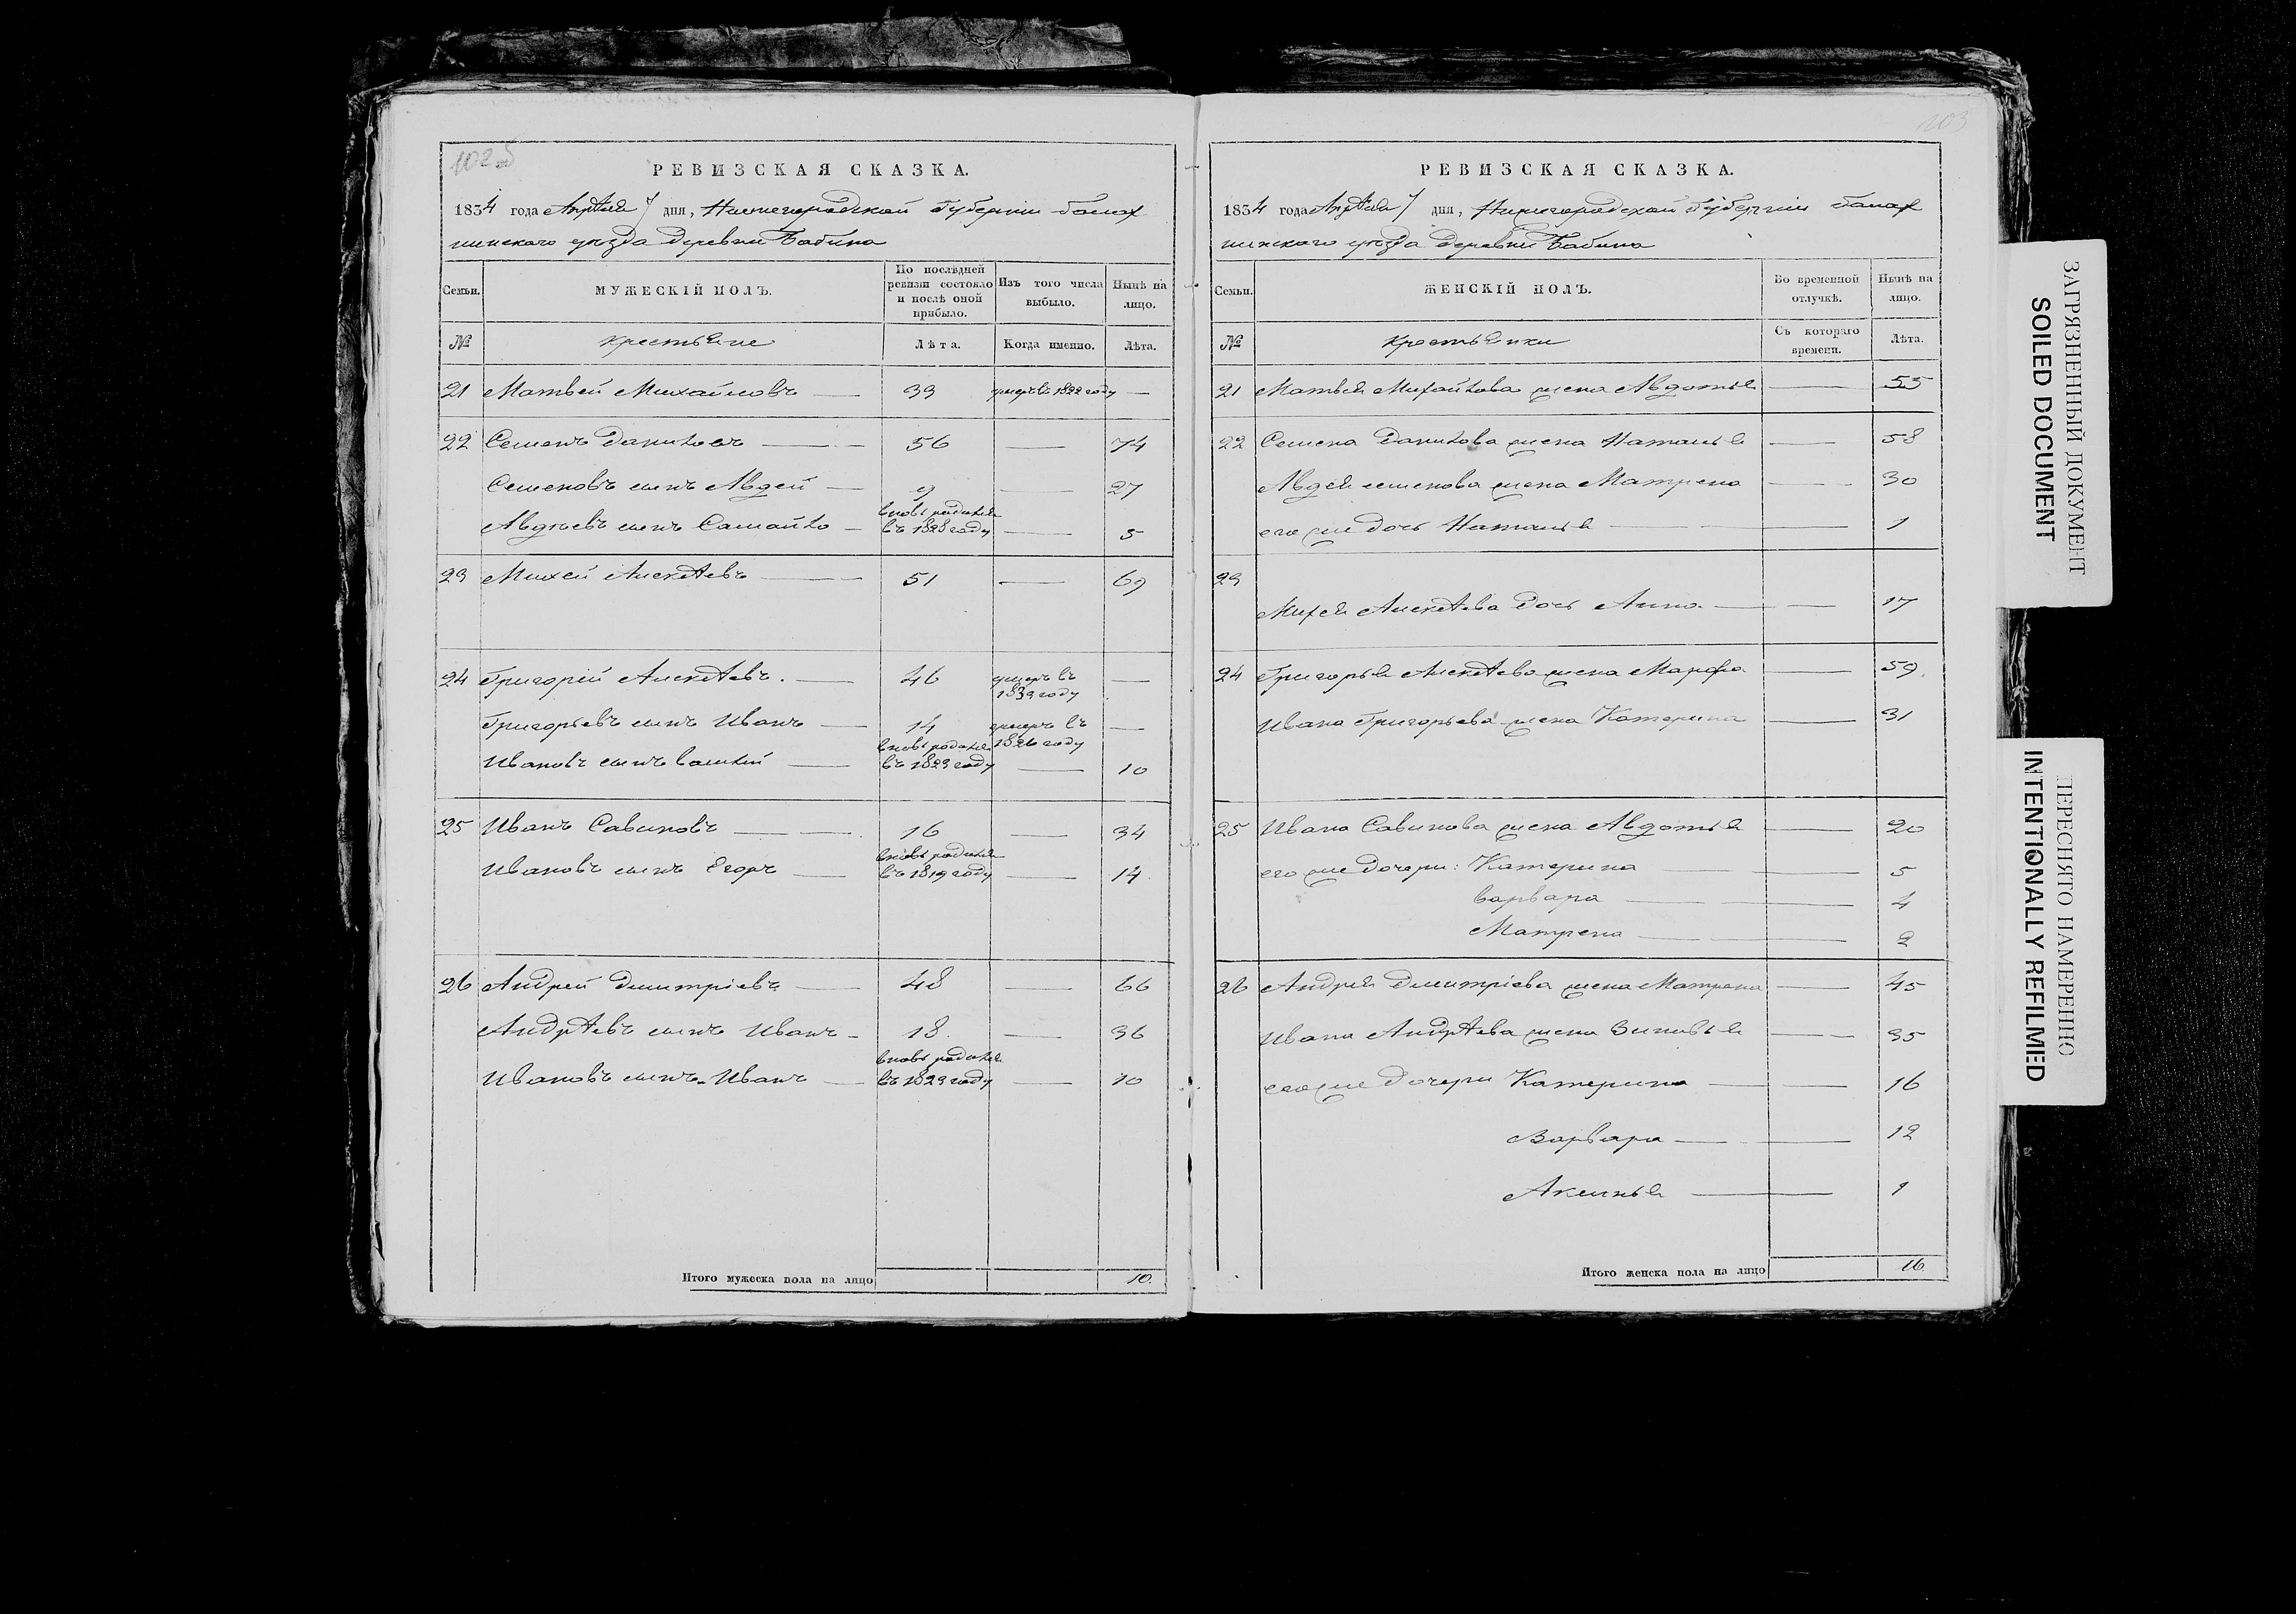 102 об
РЕВИЗСКАЯ СКАЗКА.
1834 года Апрѣля 7 дня, Нижегородской Губерніи Балах
нинскаго уѣзда деревни Бабина
Семьи. МУЖЕСКІЙ ПОЛЪ. По послѣдней ревизіи состояло и послѣ оной прибыло. Изъ того числа выбыло. Нынѣ на лицо.
№ крестьяне Лѣта. Когда именно. Лѣта.
21 Матвей Михайловъ — 33 умеръ въ 1822 году —
22 Семенъ Даниловъ — 56 — 74
Семеновъ сынъ Авдей — 9 — 27
Авдѣевъ сынъ Самойло — вновь родился въ 1828 году — 5
23 Михей Алексѣевъ — 51 — 69
24 Григорей Алексѣевъ. — 46 умеръ въ 1832 году —
Григорьевъ сынъ Иванъ — 14 умеръ въ 1826 году —
Ивановъ сынъ Василий — вновь родился въ 1823 году — 10
25 Иванъ Савиновъ — 16 — 34
Ивановъ сынъ Егоръ — вновь родился въ 1819 году — 14
26 Андрей Дмитріевъ — 48 — 66
Андрѣевъ сынъ Иванъ — 18 — 36
Ивановъ сынъ Иванъ — вновь родился въ 1823 году — 10
Итого мужеска пола на лицо 10.
103
РЕВИЗСКАЯ СКАЗКА.
1834 года Апрѣля 7 дня, Нижегородской Губерніи Балах
нинскаго уѣзда деревни Бабина
Семьи. ЖЕНСКІЙ ПОЛЪ. Во временной отлучкѣ. Нынѣ на лицо.
№ крестьянки Съ котораго времени. Лѣта.
21 Матвея Михайлова жена Авдотья — 55
22 Семена Данилова жена Наталья — 58
Авдея семенова жена Матрена — 30
его же дочь Наталья — 1
23
Михея Алексѣева дочь Анна — 17
24 Григорья Алексѣева жена Марфа — 59
Ивана Григорьева жена Катерина — 31
25 Ивана Савинова жена Авдотья — 20
его же дочери: Катерина — 5
Варвара — 4
Матрена — 2
26 Андрея Дмитріева жена Матрена — 45
Ивана Андрѣева жена Зиновья — 35
его же дочери Катерина — 16
Варвара — 12
Аксинья — 1
Итого женска пола на лицо 16
ЗАГРЯЗНЕННЫЙ ДОКУМЕНТ
SOILED DOCUMENT
ПЕРЕСНЯТО НАМЕРЕННО
INTENTIONALLY REFILMED